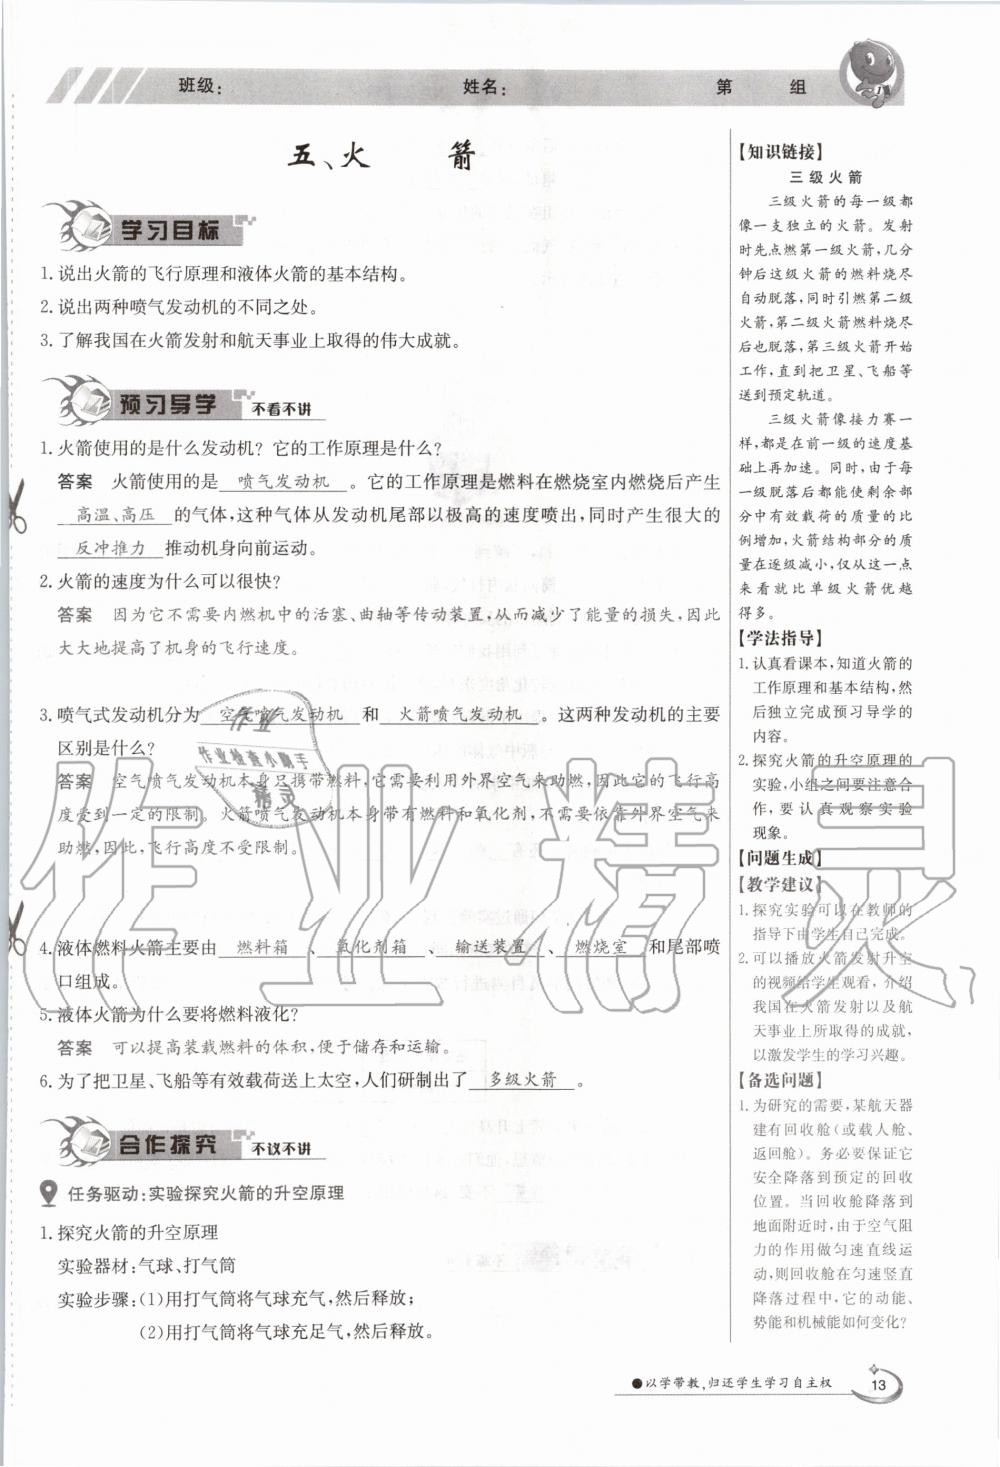 班级：
姓名：
第 组
五、火 箭
学习目标
1. 说出火箭的飞行原理和液体火箭的基本结构。
2. 说出两种喷气发动机的不同之处。
3. 了解我国在火箭发射和航天事业上取得的伟大成就。
预习导学 不看不讲
1. 火箭使用的是什么发动机？它的工作原理是什么？
答案 火箭使用的是 喷气发动机 。它的工作原理是燃料在燃烧室内燃烧后产生
高温、高压 的气体，这种气体从发动机尾部以极高的速度喷出，同时产生很大的
反冲推力 推动机身向前运动。
2. 火箭的速度为什么可以很快？
答案 因为它不需要内燃机中的活塞、曲轴等传动装置，从而减少了能量的损失，因此
大大地提高了机身的飞行速度。
3. 喷气式发动机分为 空气喷气发动机 和 火箭喷气发动机 。这两种发动机的主要
区别是什么？
答案 空气喷气发动机本身只携带燃料，它需要利用外界空气来助燃，因此它的飞行高
度受到一定的限制。火箭喷气发动机本身带有燃料和氧化剂，不需要依靠外界空气来
助燃，因此，飞行高度不受限制。
4. 液体燃料火箭主要由 燃料箱 、 氧化剂箱 、 输送装置 、 燃烧室 和尾部喷
口组成。
5. 液体火箭为什么要将燃料液化？
答案 可以提高装载燃料的体积，便于储存和运输。
6. 为了把卫星、飞船等有效载荷送上太空，人们研制出了 多级火箭 。
合作探究 不议不讲
任务驱动：实验探究火箭的升空原理
1. 探究火箭的升空原理
实验器材：气球、打气筒
实验步骤：(1)用打气筒将气球充气，然后释放；
(2)用打气筒将气球充足气，然后释放。
【知识链接】
三级火箭
三级火箭的每一级都
像一支独立的火箭。发射
时先点燃第一级火箭，几分
钟后这级火箭的燃料烧尽
自动脱落，同时引燃第二级
火箭，第二级火箭燃料烧尽
后也脱落，第三级火箭开始
工作，直到把卫星、飞船等
送到预定轨道。
三级火箭像接力赛一
样，都是在前一级的速度基
础上再加速。同时，由于每
一级脱落后能使剩余部
分中有效载荷的质量的比
例增加，火箭结构部分的质
量在逐级减小，仅从这一点
来看就比单级火箭优越
得多。
【学法指导】
1. 认真看课本，知道火箭的
工作原理和基本结构，然
后独立完成预习导学的
内容。
2. 探究火箭的升空原理的
实验，小组之间要注意合
作，要认真观察实验
现象。
【问题生成】
【教学建议】
1. 探究实验可以在教师的
指导下由学生自己完成。
2. 可以播放火箭发射升空
的视频给学生观看，介绍
我国在火箭发射以及航
天事业上所取得的成就，
以激发学生的学习兴趣。
【备选问题】
1. 为研究的需要，某航天器
建有回收舱（或载人舱、
返回舱）。务必要保证它
安全降落到预定的回收
位置。当回收舱降落到
地面附近时，由于空气阻
力的作用做匀速直线运
动，则回收舱在匀速竖直
降落过程中，它的动能、
势能和机械能如何变化？
●以学带教，归还学生学习自主权
13
作业
作业检查小助手
精灵
作业精灵